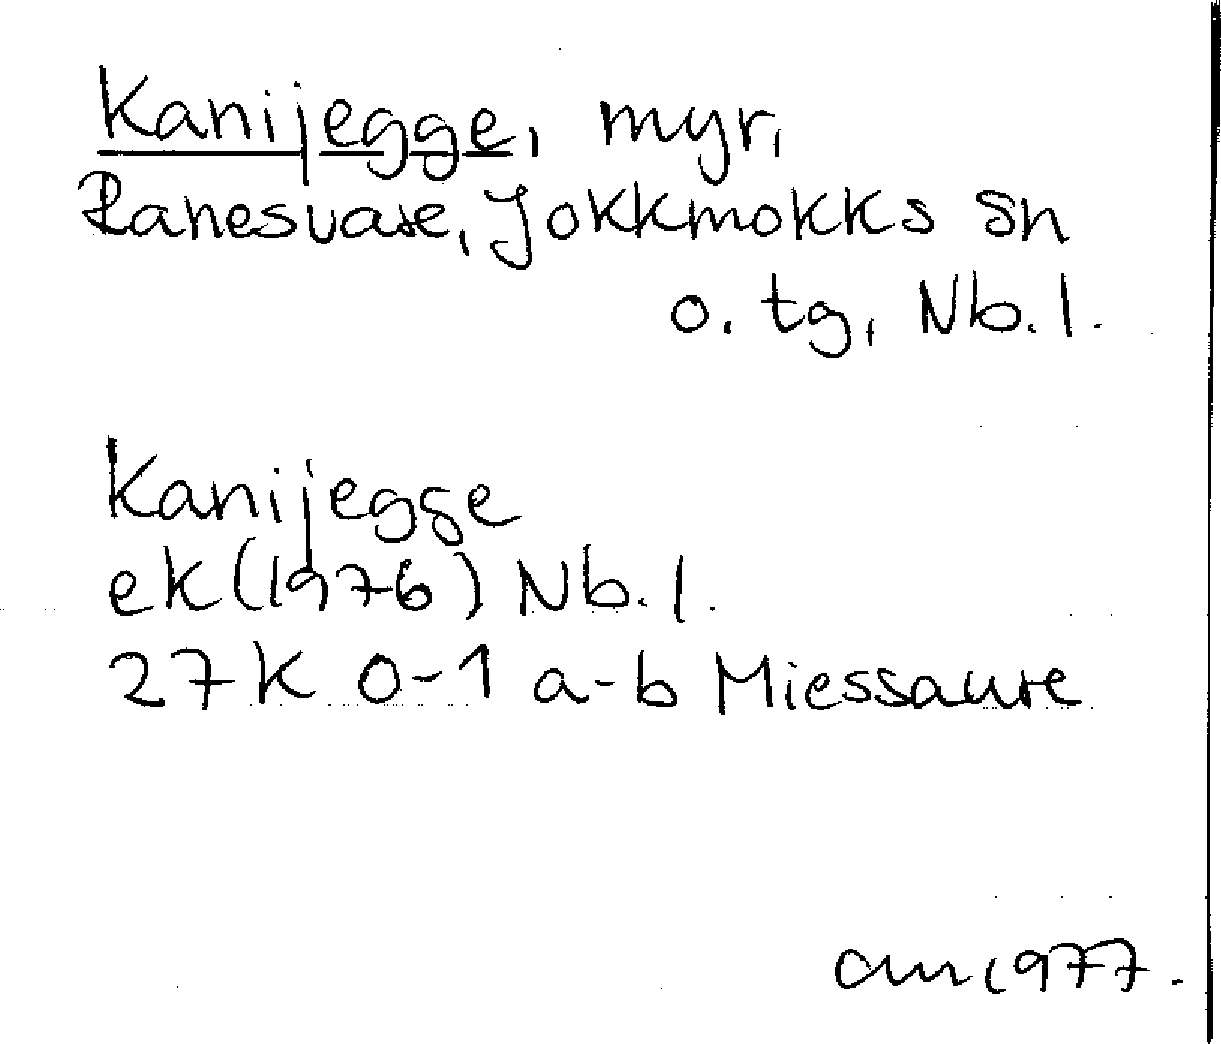 Kanijegge, myr,
Ranesvare, Jokkmokks sn
o. tg, Nb. l.
Kanijegge
ek (1976) Nb. l.
27K 0-1 a-b Miessaure
am 1977.